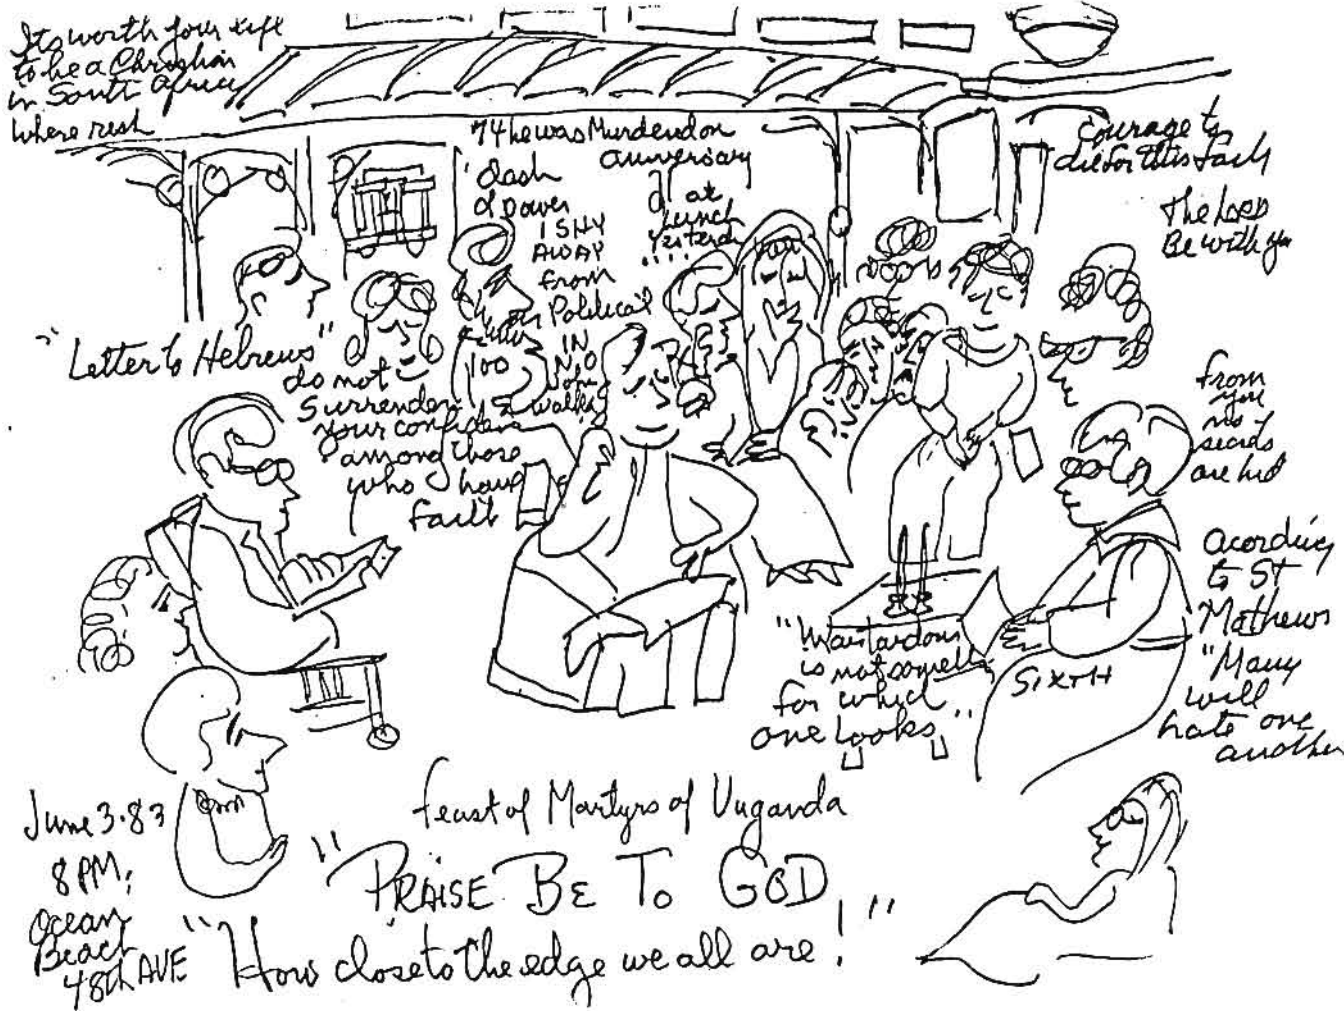 Its worth your life
to be a Christian
in South Africa
where rest
74 he was Murdend on
anniversary
clash
of power
I SHY
AWAY
from
Political
IN
NO
one
walks
at
Lunch
Yesterday
courage to
die for this faith
The LORD
Be with you
"Letter to Hebrews"
100
do not
Surrender
your confidence
among those
who have
faith
from
you
no
secrets
are hid
acording
to St
Mathews
"Many
will
hate one
another
"
is not
for which
one looks"
SIXTH
June 3.83
8 PM;
Ocean
Beach
48th AVE
feast of Martyrs of Vuganda
"PRAISE BE TO GOD
"How close to the edge we all are!"